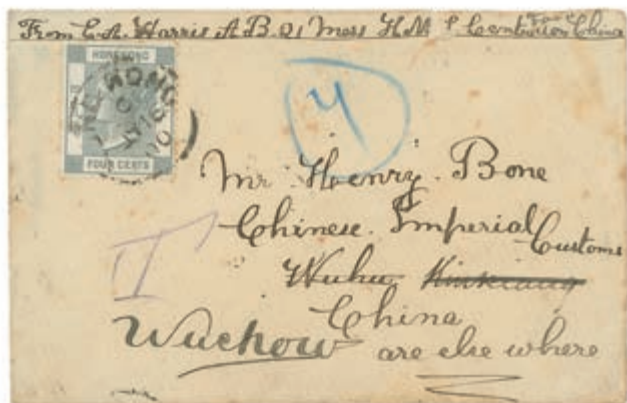 From C.A. Harris A.B. 21 Mess H.M.S. Centurion China
HONG KONG
FOUR CENTS
HONG KONG
4
Mr Henry. Bone
Chinese. Imperial Customs
Wuhu Kiukiang
China
Wuchow are else where
T